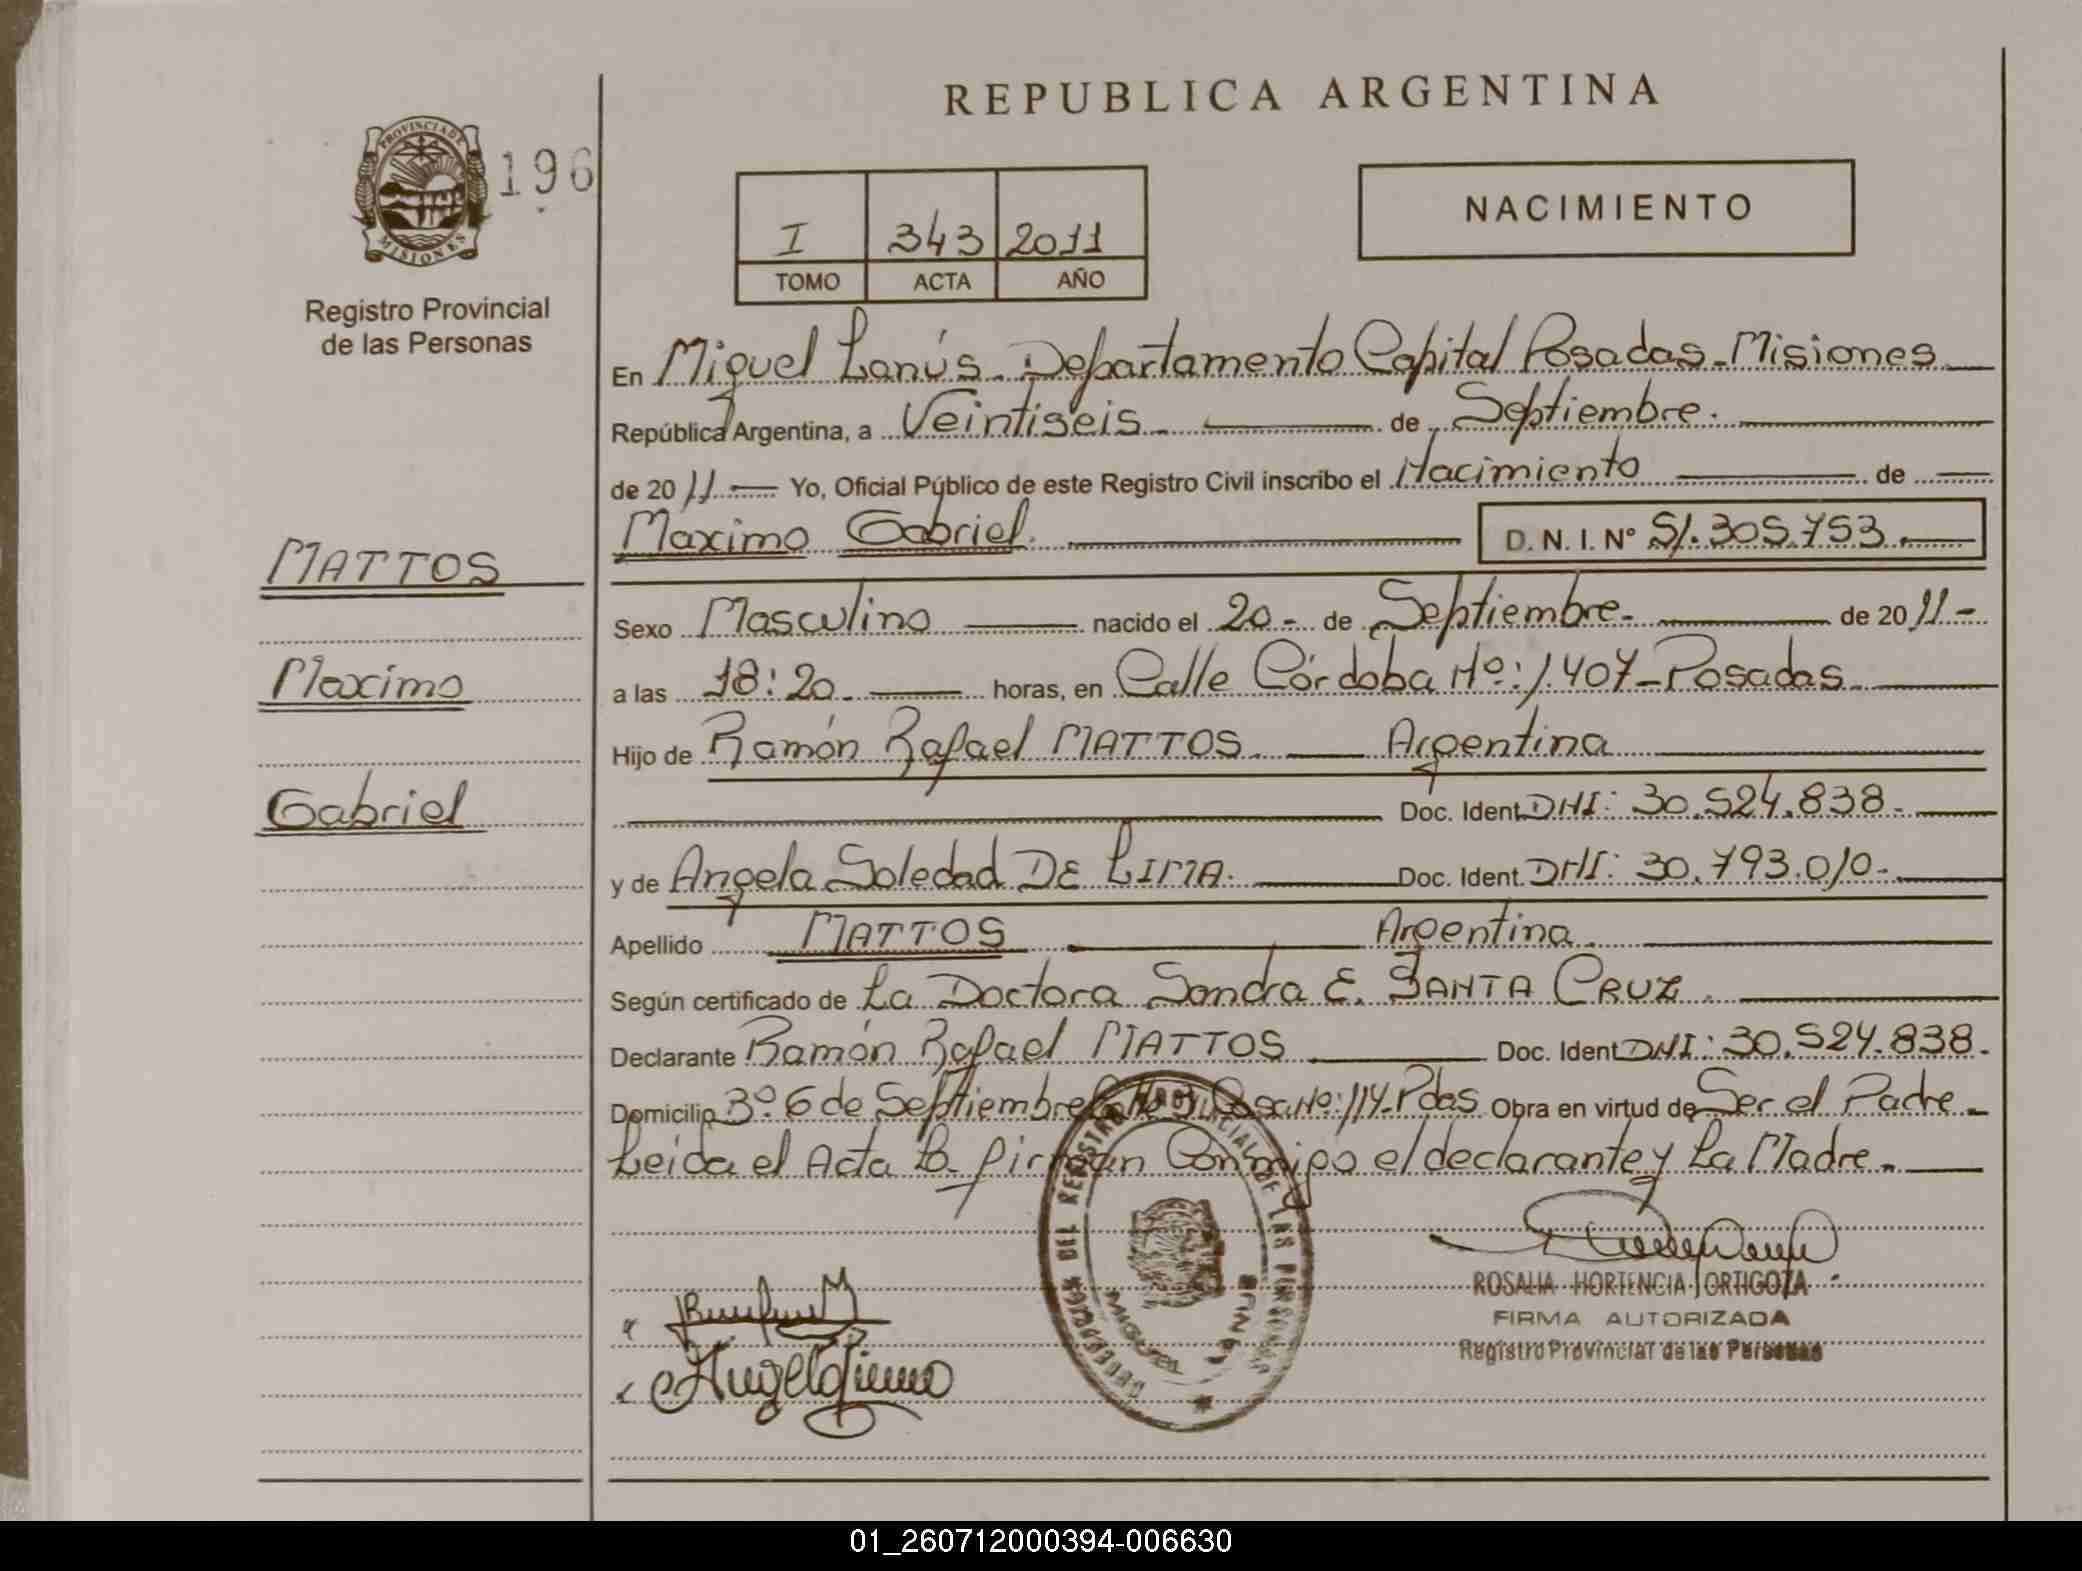 REPUBLICA ARGENTINA
PROVINCIA DE
MISIONES
196
Registro Provincial
de las Personas
I 343 2011
TOMO ACTA AÑO
NACIMIENTO
En Miguel Lanús. Departamento Capital Posadas - Misiones
República Argentina, a Veintiseis de Septiembre.
de 2011 Yo, Oficial Público de este Registro Civil inscribo el Nacimiento de
Maximo Gabriel. D. N. I. Nº S/. 305.753
MATTOS
Maximo
Gabriel
Sexo Masculino nacido el 20 - de Septiembre - de 2011 -
a las 18:20 horas, en Calle Córdoba Nº: 1.407 - Posadas
Hijo de Ramón Rafael MATTOS Argentina
Doc. Ident. DNI: 30.524.838 -
y de Angela Soledad DE LIMA. Doc. Ident. DNI: 30.793.010 -
Apellido MATTOS Argentina.
Según certificado de La Doctora Sandra E. SANTA CRUZ.
Declarante Ramón Rafael MATTOS Doc. Ident DNI: 30.524.838.
Domicilio Bº 6 de Septiembre Casa Nº: 114 - Pdas Obra en virtud de Ser el Padre -
Leida el Acta La firman Conmigo el declarante y La Madre.
DEL REGISTRO PROVINCIAL DE LAS PERSONAS
MIGUEL LANUS
ROSALIA HORTENCIA ORTIGOZA
FIRMA AUTORIZADA
Registro Provincial de las Personas
01_260712000394-006630